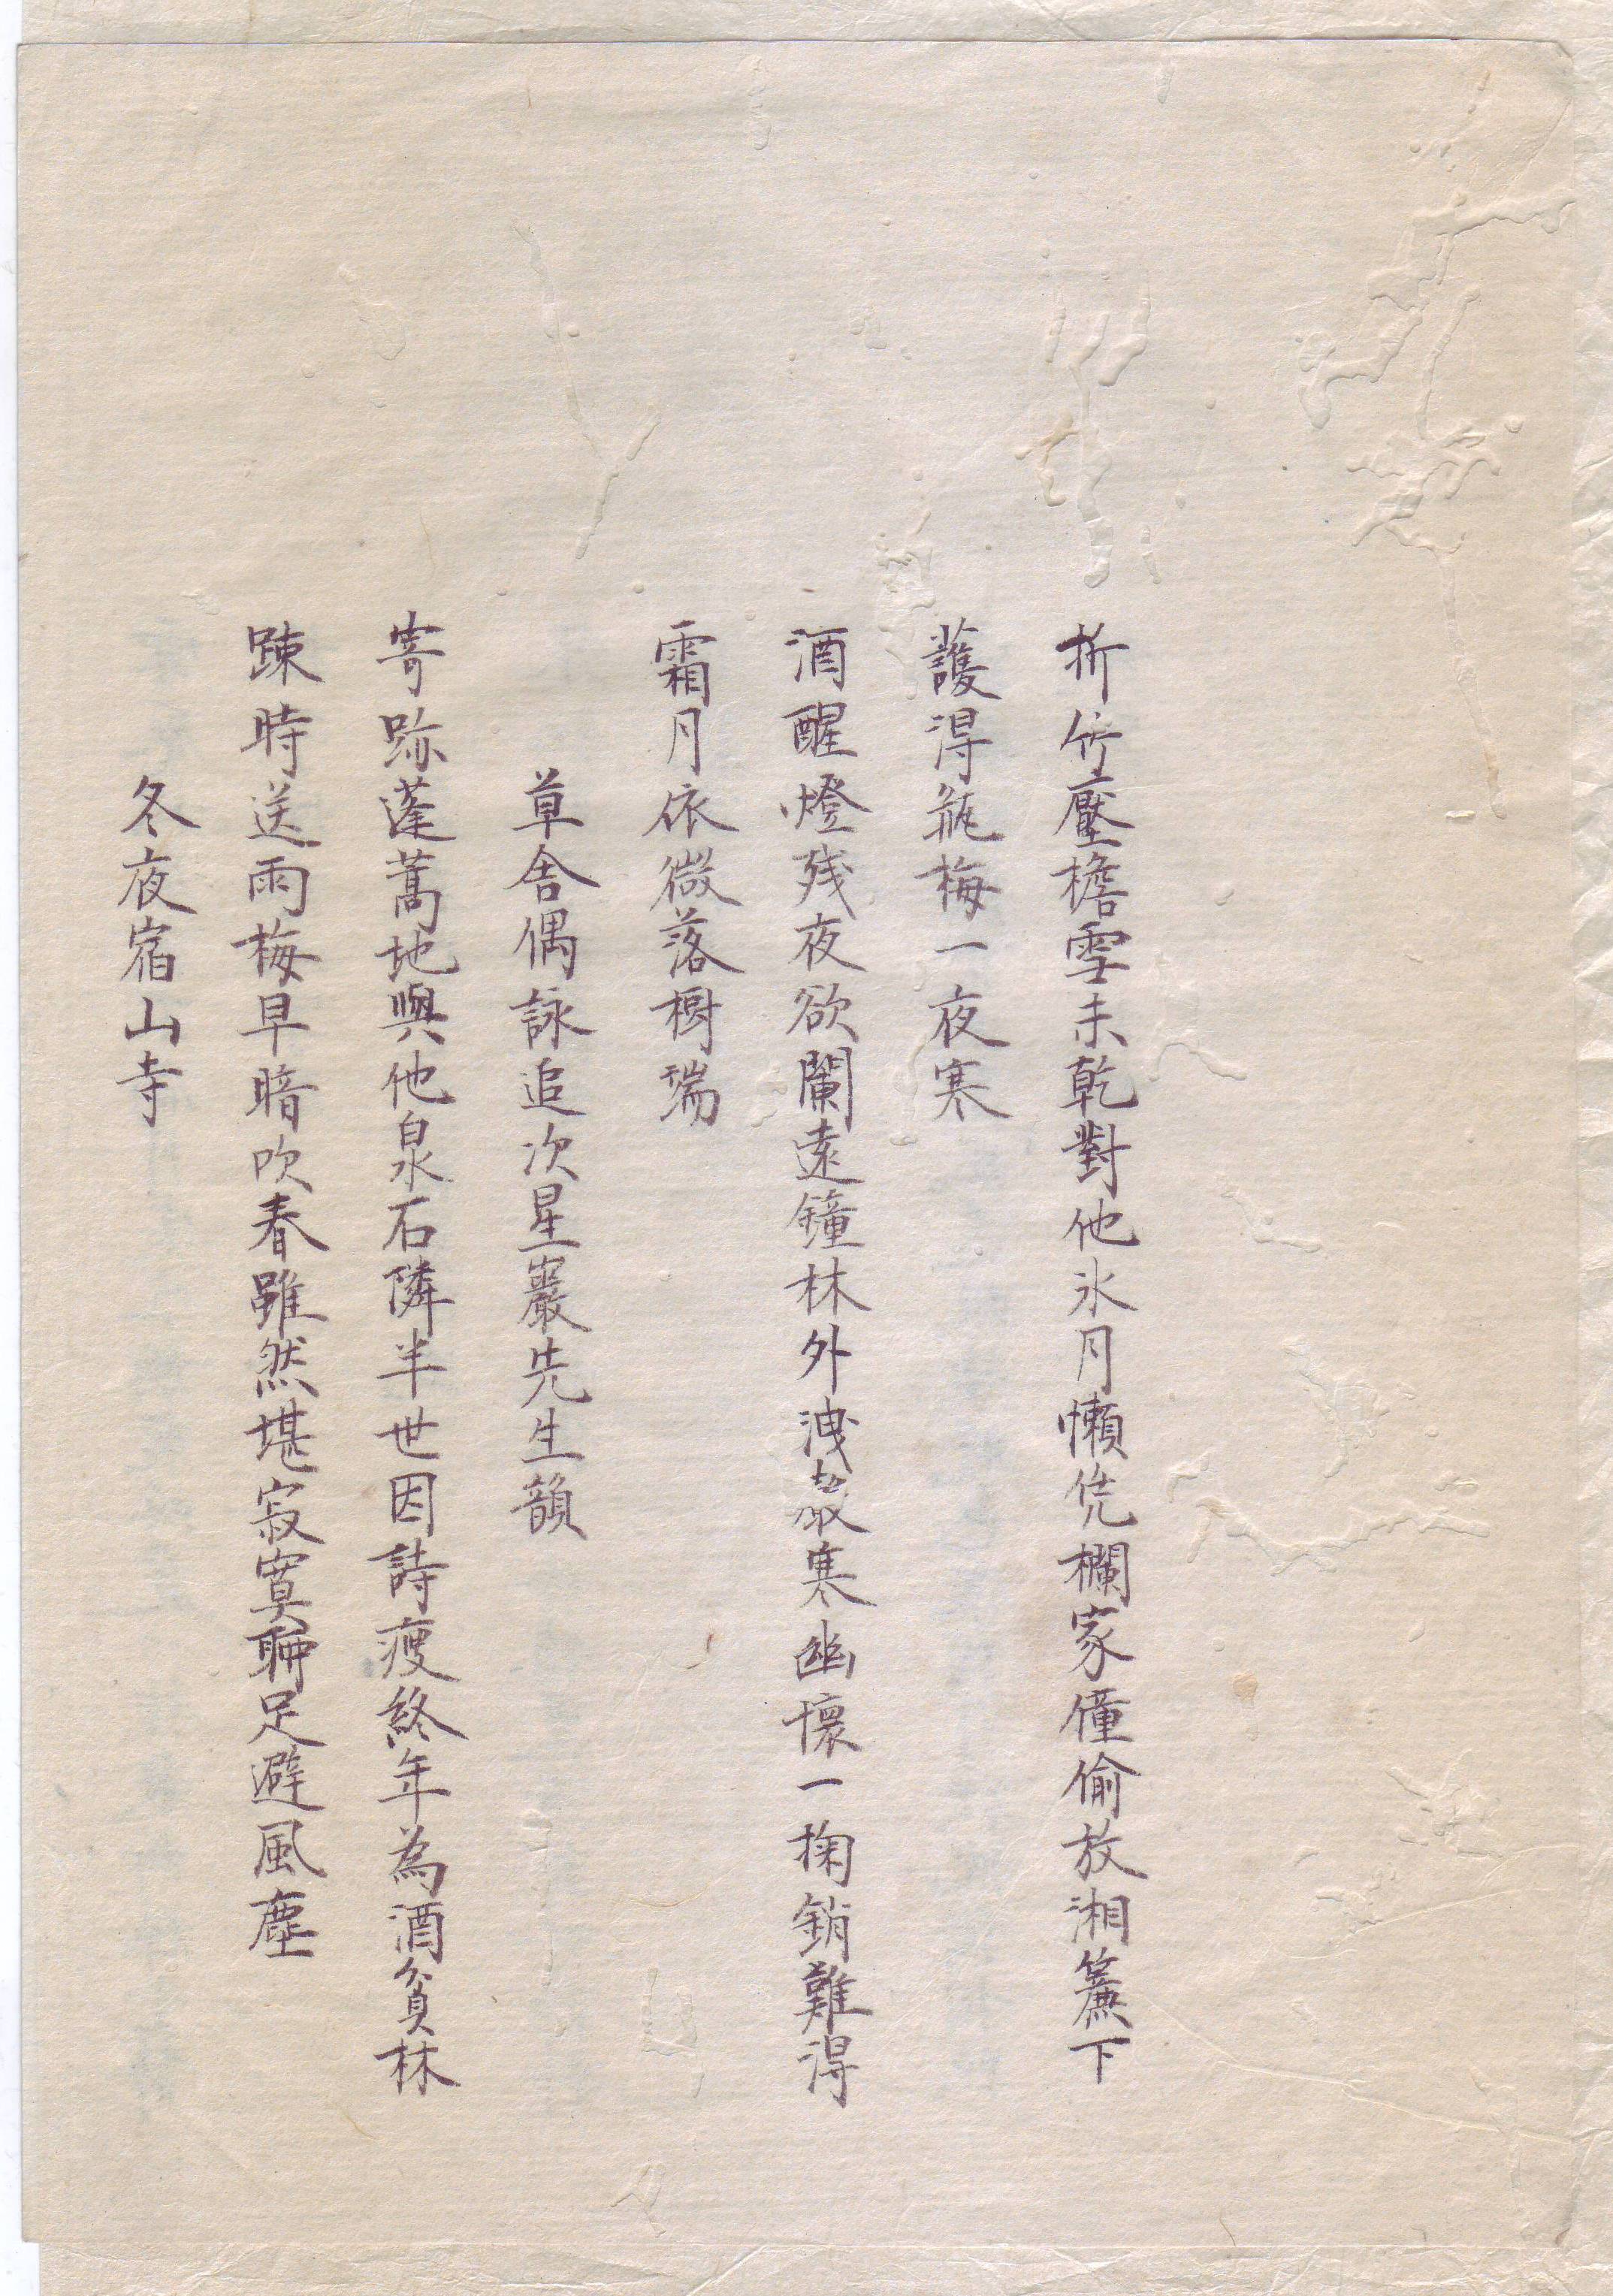 折竹壓檐雪未乾對他氷月懶凭欄家僮偷放湘簾下
護得瓶梅一夜寒
酒醒燈残夜欲闌遠鐘林外洩嚴寒幽懷一掬銷難得
霜月依微落樹端
草舎偶詠追次星巖先生韻
寄跡蓬蒿地與他泉石隣半世因詩瘦終年為酒貧林
踈時送雨梅早暗吹春雖然堪寂寞聊足避風塵
冬夜宿山寺